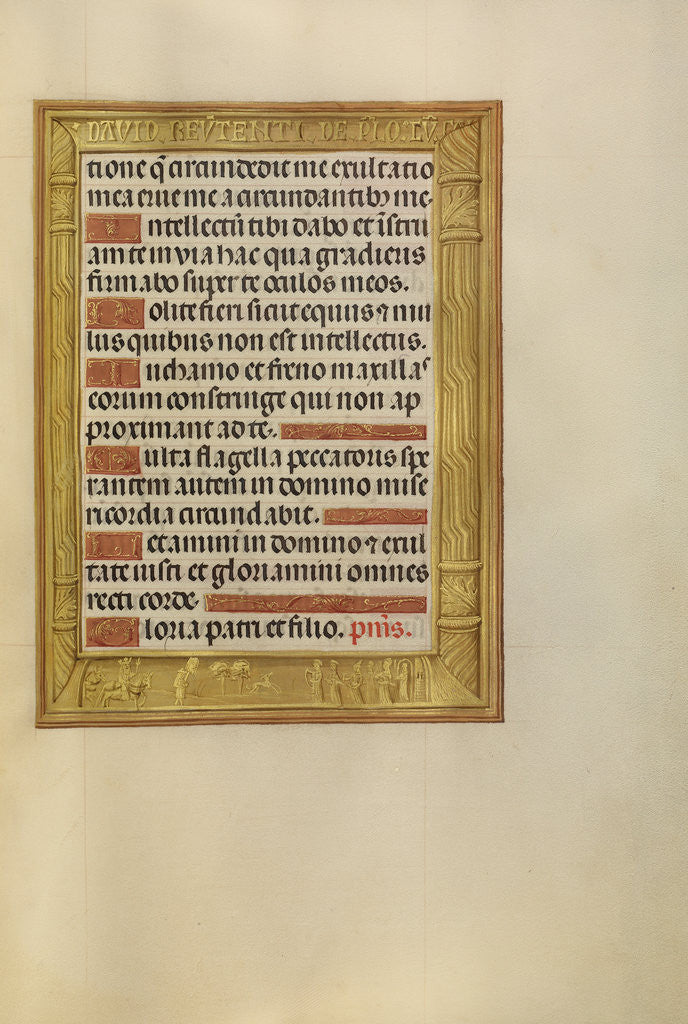 DAVID REŪTENTI DE P̄LO LV̄C
tione q̄ circumdedit me exultatio
mea erue me a circundantibꝰ me.
Intellectū tibi dabo et īstru
am te in via hac qua gradieris
firmabo super te oculos meos.
Nolite fieri sicut equus ⁊ mu
lus quibus non est intellectus.
In chamo et freno maxillas
eorum constringe qui non ap
proximant ad te.
Multa flagella peccatoris spe
rantem autem in domino mise
ricordia circundabit.
Letamini in domino ⁊ exul
tate iusti et gloriamini omnes
recti corde.
Gloria patri et filio. pm̄s.